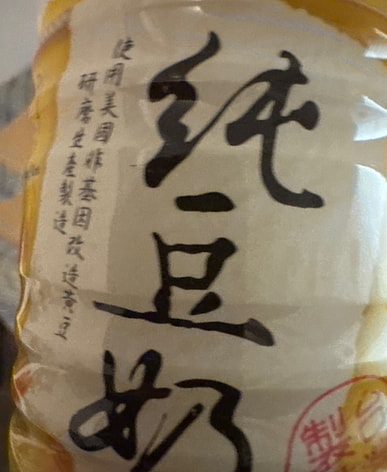 純豆奶
使用美國非基因改造黃豆
研磨生產製造
製